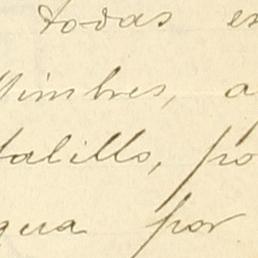 todas
Mimbres, a
talillo, po
gua por